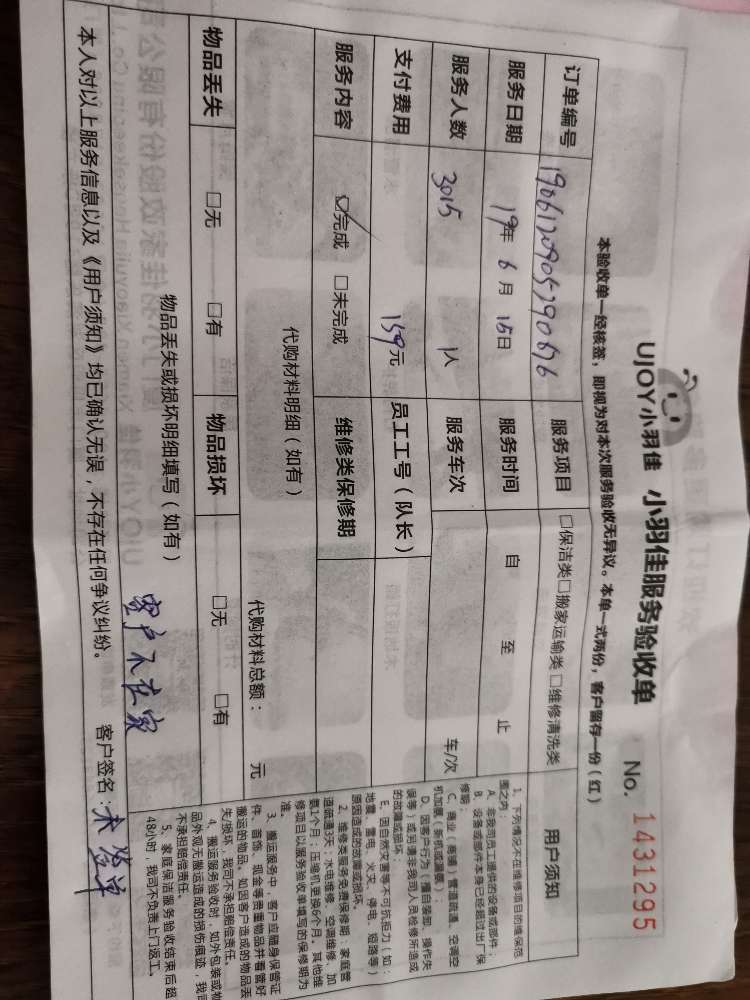 UJOY小羽佳 小羽佳服务验收单 No. 1431295
本验收单一经核签，即视为对本次服务验收无异议。本单一式两份，客户留存一份（红）
订单编号 服务项目 □保洁类□搬家运输类□维修清洗类
服务日期 19年6月15日 服务时间 自 至 止
服务人数 3015 1人 服务车次 车/次
支付费用 159元 员工工号（队长）
服务内容 ☑完成 □未完成 维修类保修期
代购材料明细（如有） 代购材料总额： 元
物品丢失 □无 □有 物品损坏 □无 □有
物品丢失或损坏明细填写（如有） 客户不在家
本人对以上服务信息以及《用户须知》均已确认无误，不存在任何争议纠纷。 客户签名：未签单
用户须知
1. 下列情况不在维修项目的维保范
围之内：
A、非我司员工提供的设备或部件；
B、设备或部件本身已经超过出厂保
修期；
C、商业（商铺）管道疏通、空调空
机加氨（新机或漏氨）；
D、因客户行为（擅自装卸、操作失
误等）或另请非我司人员检修所造成
的故障或损坏；
E、因自然灾害等不可抗拒力（如：
地震、雷电、火灾、停电、短路等）
原因造成的故障或损坏。
2. 维修类服务免费保修期：家庭管
道疏通3天；水电维修、空调维修、加
氨1个月；压缩机更换6个月。其他维
修项目以服务验收单填写的保修期为
准。
3. 搬运服务中，客户应随身保管证
件、首饰、现金等贵重物品并看管好
搬运的物品。如因客户造成的物品丢
失/损坏，我司不承担赔偿责任。
4. 搬运服务验收时，如外包装或物
品外观无搬运造成的损伤痕迹，我司
不承担赔偿责任。
5. 家庭保洁服务验收结束后超
48小时，我司不负责上门返工。